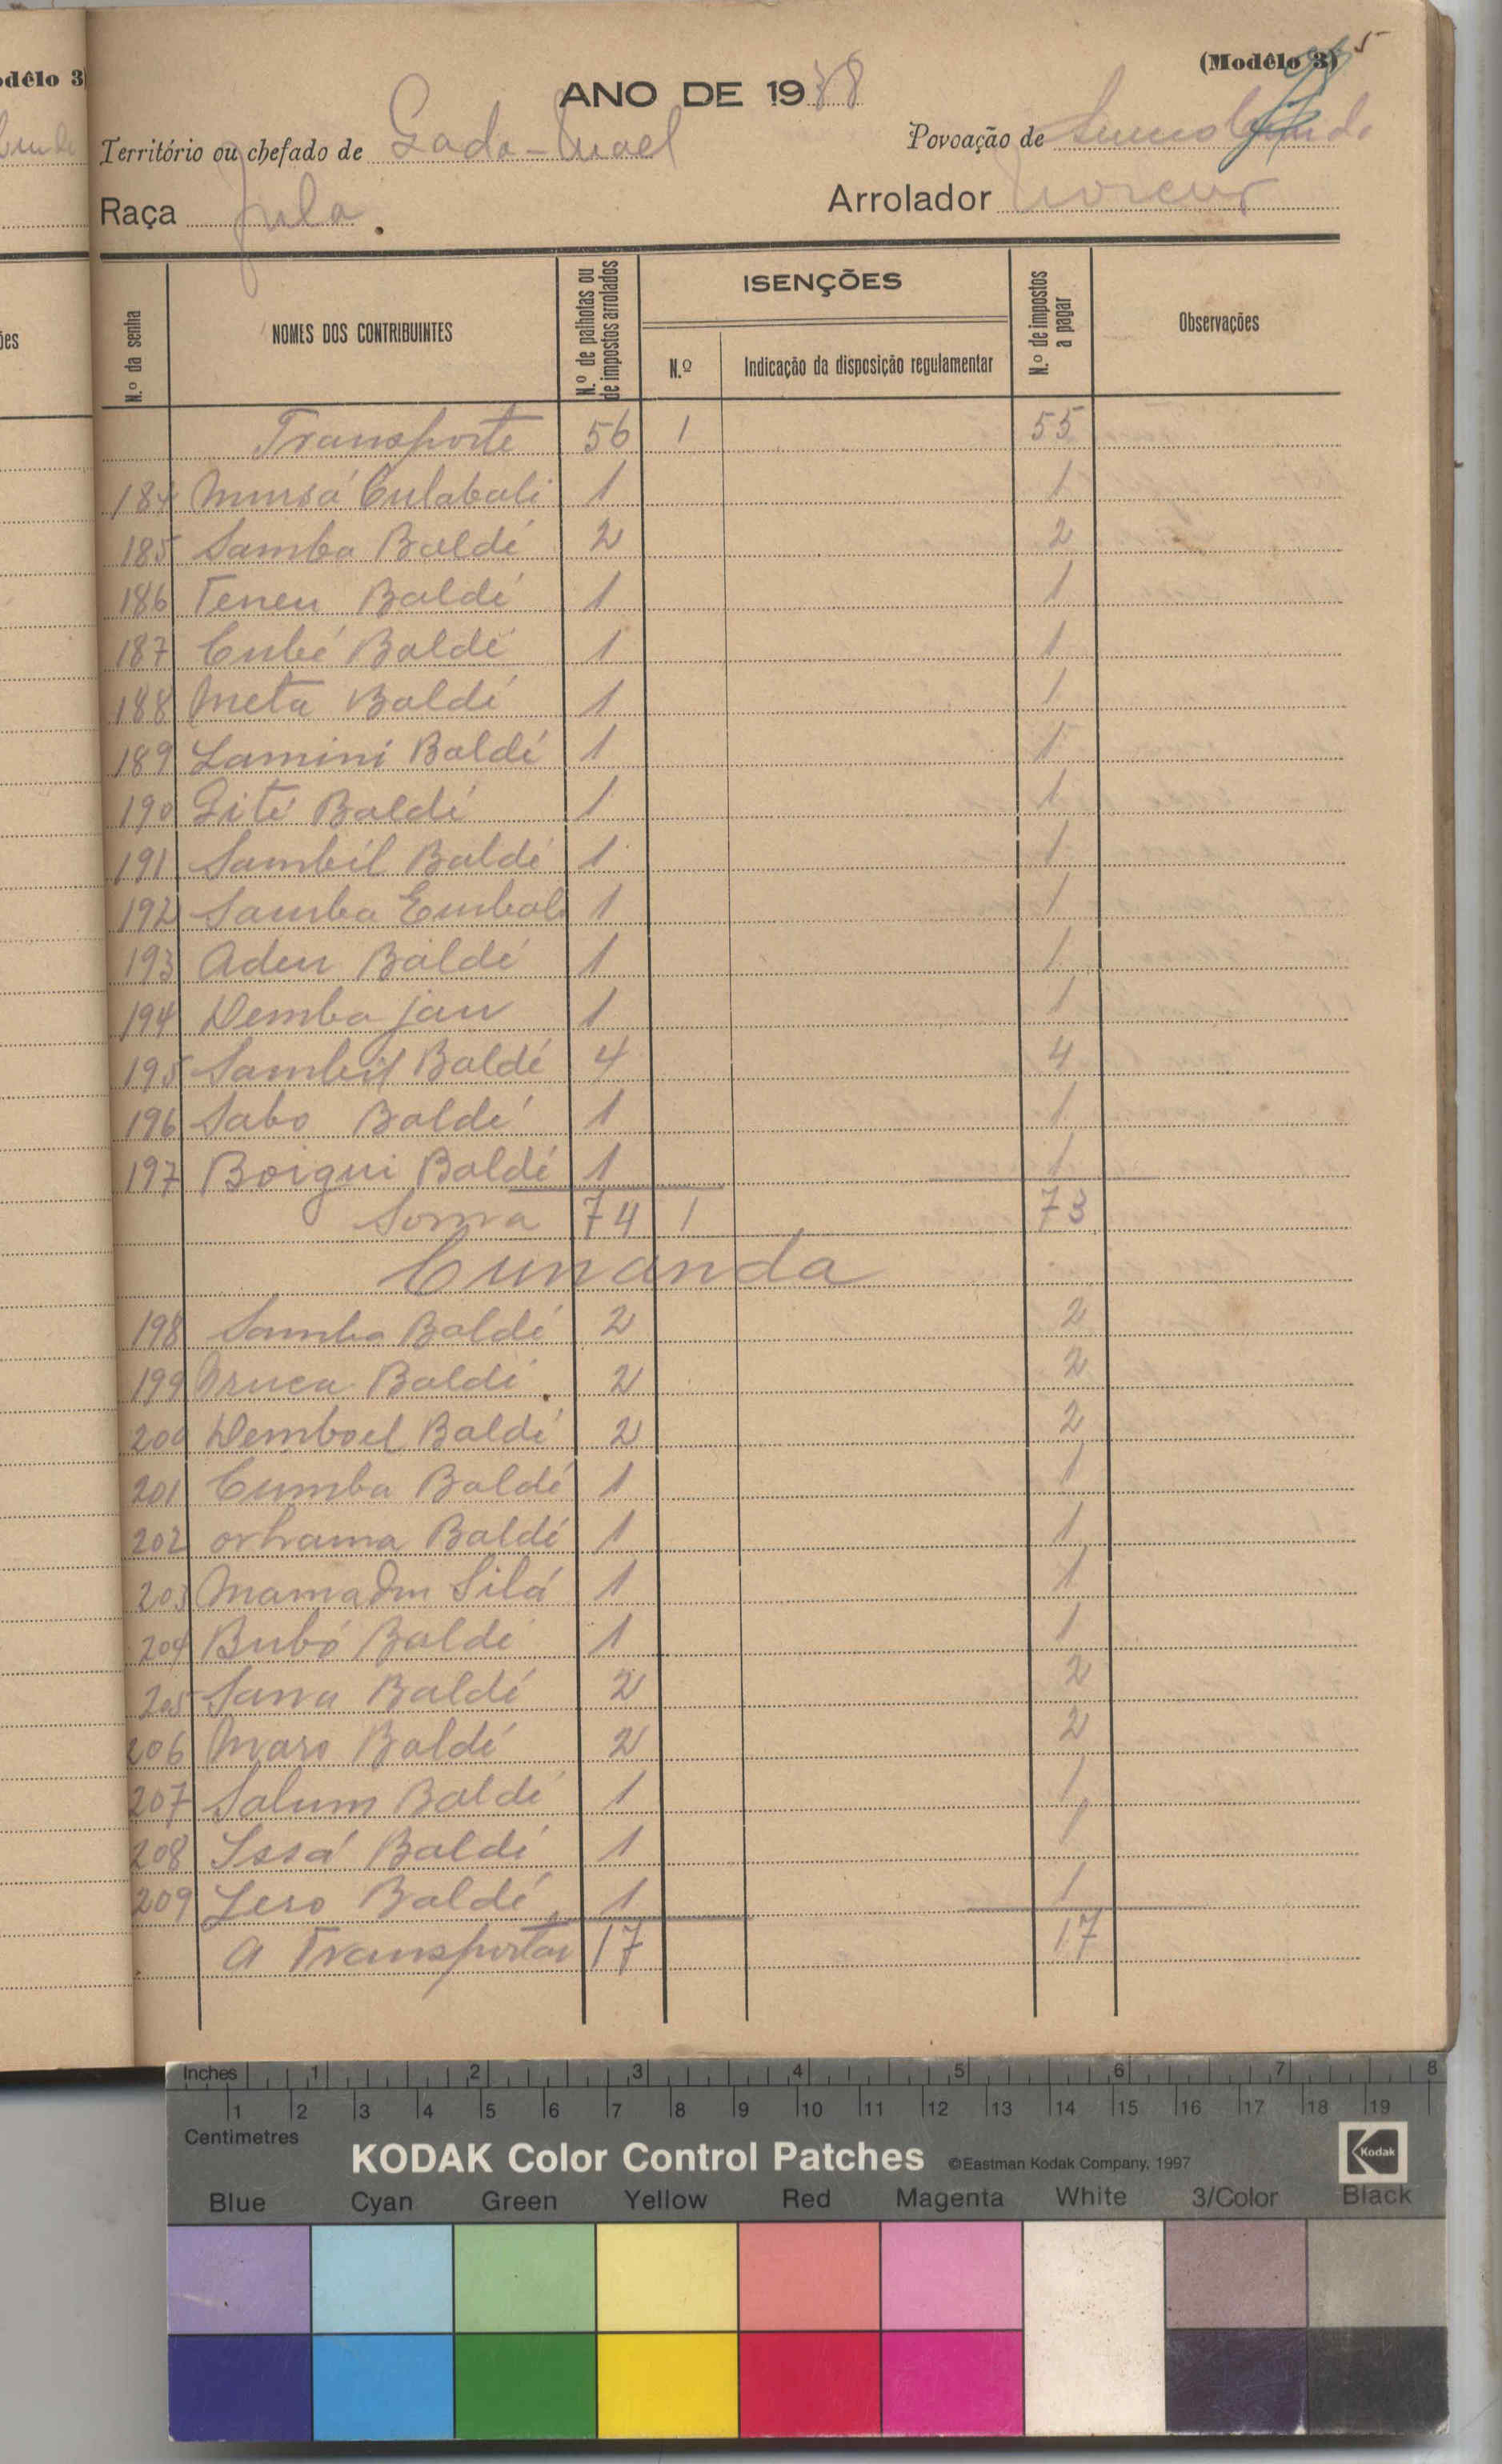 (Modêlo 3)
5
ANO DE 1938
Território ou chefado de Gada-Mael Povoação de
Raça Fula. Arrolador
N.º da senha
NOMES DOS CONTRIBUINTES
N.º de palhotas ou de impostos arrolados
ISENÇÕES
N.º
Indicação da disposição regulamentar
N.º de impostos a pagar
Observações
Transporte 56 1 55
184 Mussá Culabali 1 1
185 Samba Baldé 2 2
186 Teneu Baldé 1 1
187 Cubé Baldé 1 1
188 Meta Baldé 1 1
189 Lamini Baldé 1 1
190 Gité Baldé 1 1
191 Sambél Baldé 1 1
192 Samba Embaló 1 1
193 Adeu Baldé 1 1
194 Demba jau 1 1
195 Baldé 4 4
196 Sabo Baldé 1 1
197 Boigui Baldé 1 1
Soma 74 1 73
Cunanda
198 Samba Baldé 2 2
199 Baldé 2 2
200 Demboel Baldé 2 2
201 Cumba Baldé 1 1
202 Baldé 1 1
203 Mamadu Silá 1 1
204 Bubó Baldé 1 1
205 Sana Baldé 2 2
206 Maro Baldé 2 2
207 Salum Baldé 1 1
208 Issá Baldé 1 1
209 Iero Baldé 1 1
A Transportar 17 17
Inches 1 2 3 4 5 6 7 8
1 2 3 4 5 6 7 8 9 10 11 12 13 14 15 16 17 18 19
Centimetres
KODAK Color Control Patches ©Eastman Kodak Company, 1997 Kodak
Blue Cyan Green Yellow Red Magenta White 3/Color Black